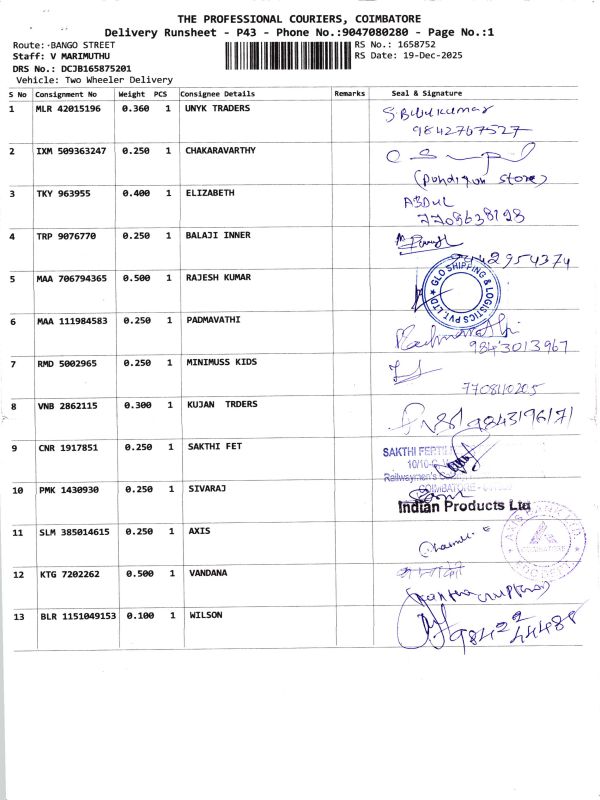 THE PROFESSIONAL COURIERS, COIMBATORE
Delivery Runsheet - P43 - Phone No.:9047080280 - Page No.:1
Route:-BANGO STREET RS No.: 1658752
Staff: V MARIMUTHU RS Date: 19-Dec-2025
DRS No.: DCJB165875201
Vehicle: Two Wheeler Delivery
S No Consignment No Weight PCS Consignee Details Remarks Seal & Signature
1 MLR 42015196 0.360 1 UNYK TRADERS
9842767527
2 IXM 509363247 0.250 1 CHAKARAVARTHY
store)
3 TKY 963955 0.400 1 ELIZABETH ABDUL
7708638198
4 TRP 9076770 0.250 1 BALAJI INNER
9442954374
5 MAA 706794365 0.500 1 RAJESH KUMAR GLO SHIPPING & LOGISTICS PVT.LTD
6 MAA 111984583 0.250 1 PADMAVATHI
9843013967
7 RMD 5002965 0.250 1 MINIMUSS KIDS
7708110205
8 VNB 2862115 0.300 1 KUJAN TRDERS 9843196171
9 CNR 1917851 0.250 1 SAKTHI FET SAKTHI FERTIL
10/10-
Railwaymen's
COIMBATORE
10 PMK 1430930 0.250 1 SIVARAJ
Indian Products Ltd
11 SLM 385014615 0.250 1 AXIS AXIS BANK LTD.
COIMBATORE
12 KTG 7202262 0.500 1 VANDANA
13 BLR 1151049153 0.100 1 WILSON
98422
44488